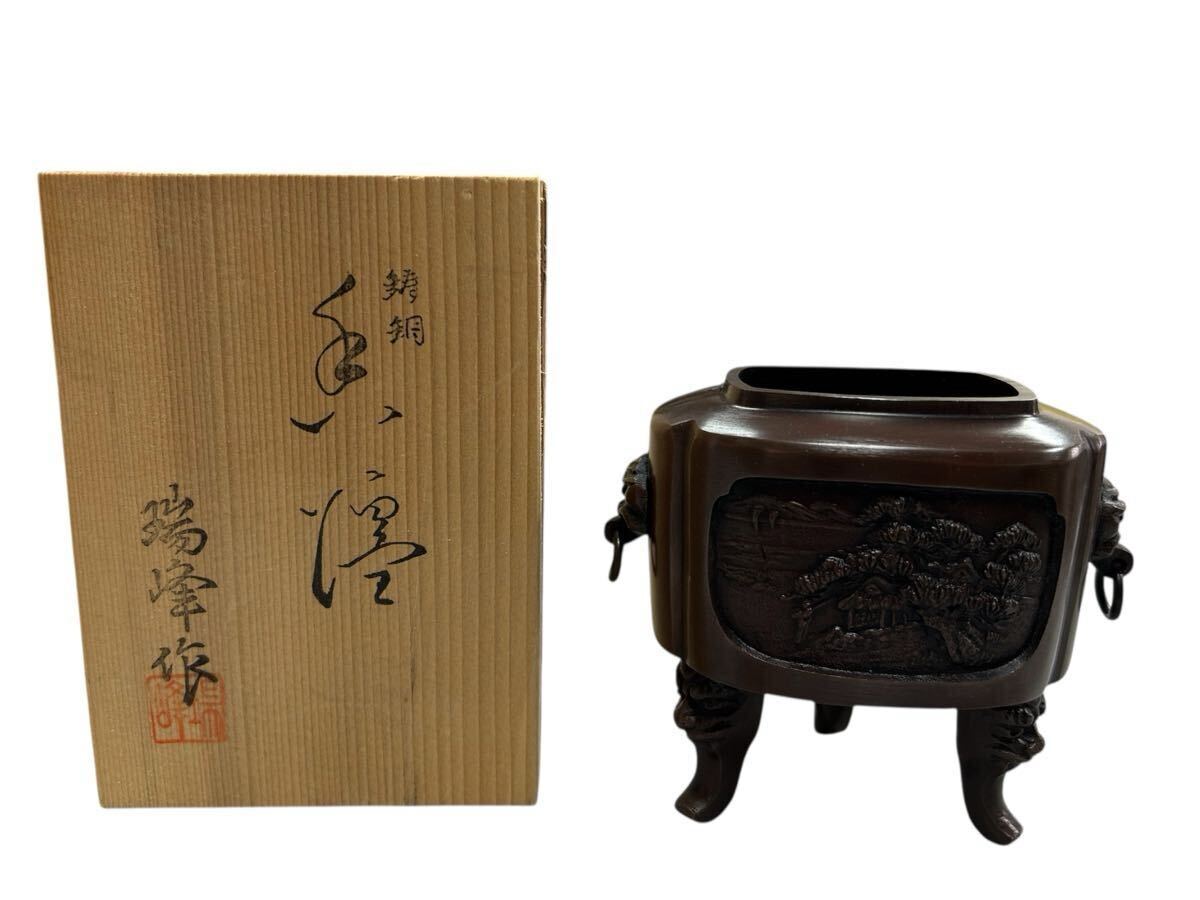 鋳銅
香爐
瑞峰作